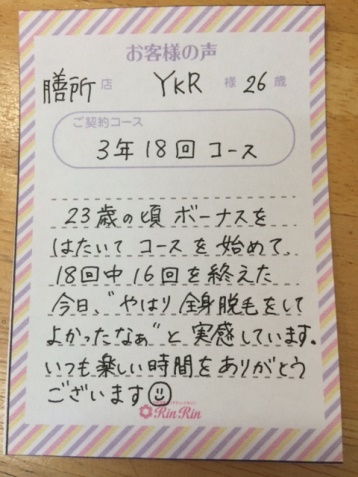 お客様の声
膳所 店 YKR 様 26 歳
ご契約コース
3年18回コース
23歳の頃 ボーナスを
はたいて コースを始めて、
18回中16回を終えた
今日、"やはり 全身脱毛をして
よかったなぁ"と 実感しています。
いつも楽しい時間をありがとう
ございます
RinRin